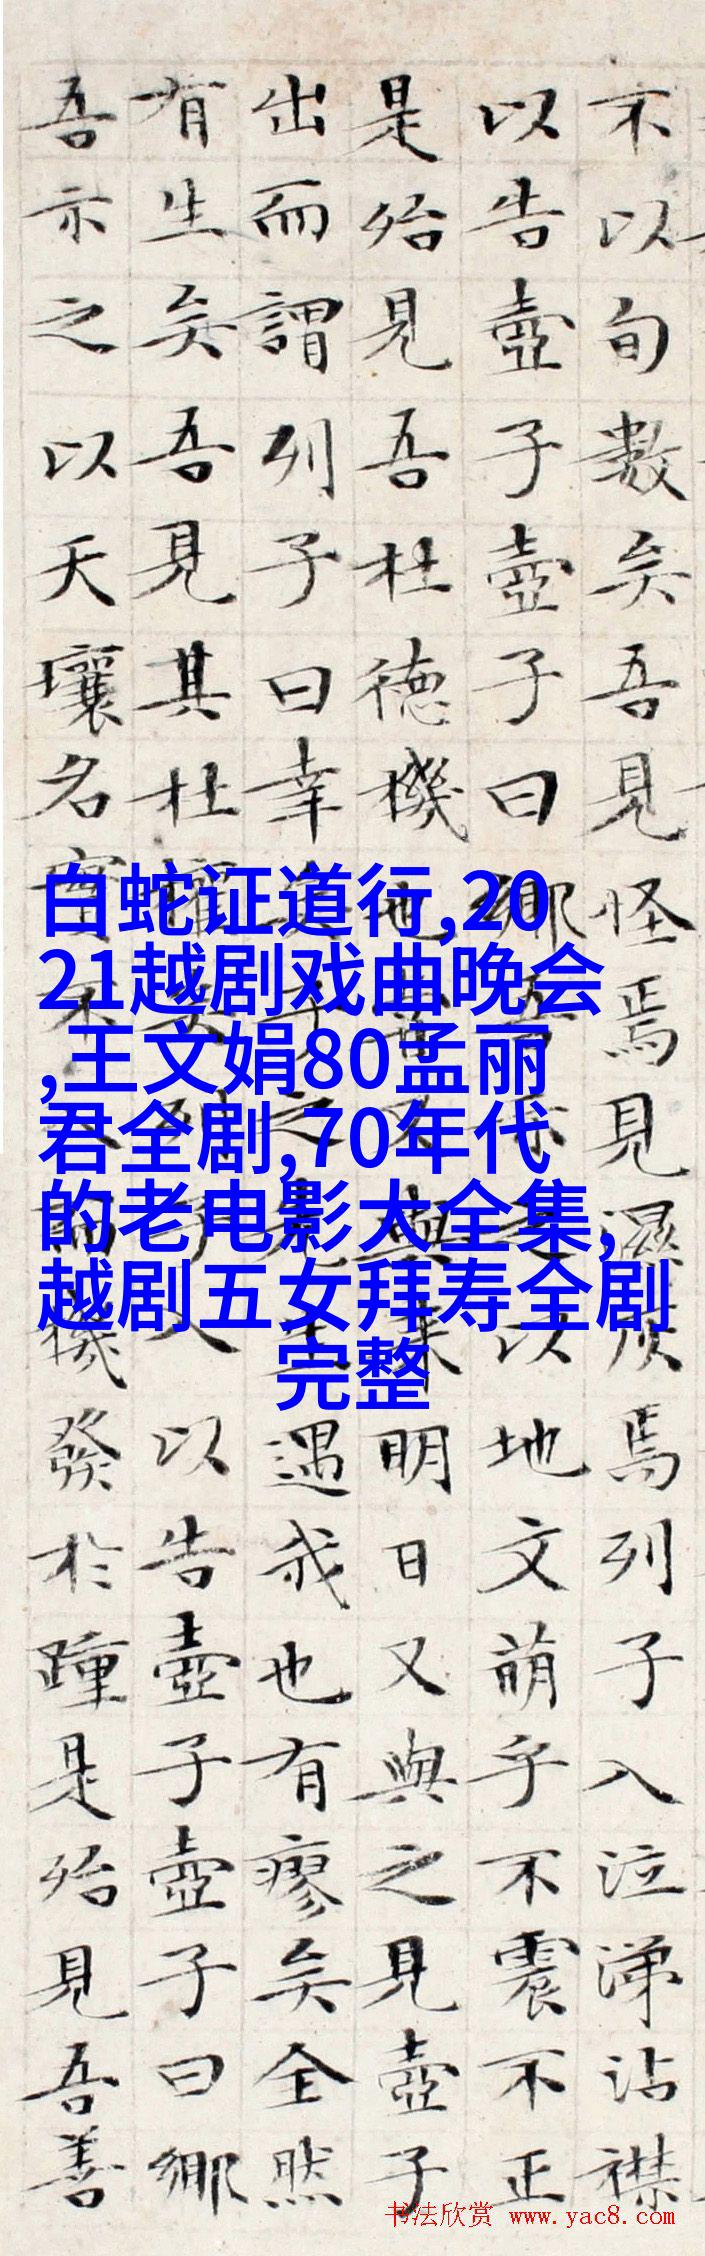 不以旬數矣吾見怪焉見濕灰焉列子入泣涕沾襟
以告壺子壺子曰鄉吾示之以地文萌乎不震不正
是殆見吾杜德機也嘗又與來明日又與之見壺子
出而謂列子曰幸矣子之先生遇我也有瘳矣全然
有生矣吾見其杜權矣列子入以告壺子壺子曰鄉
吾示之以天壤名實不入而機發於踵是殆見吾善
白蛇证道行,20
21越剧戏曲晚会
,王文娟80孟丽
君全剧,70年代
的老电影大全集,
越剧五女拜寿全剧
完整
书法欣赏 www.yac8.com